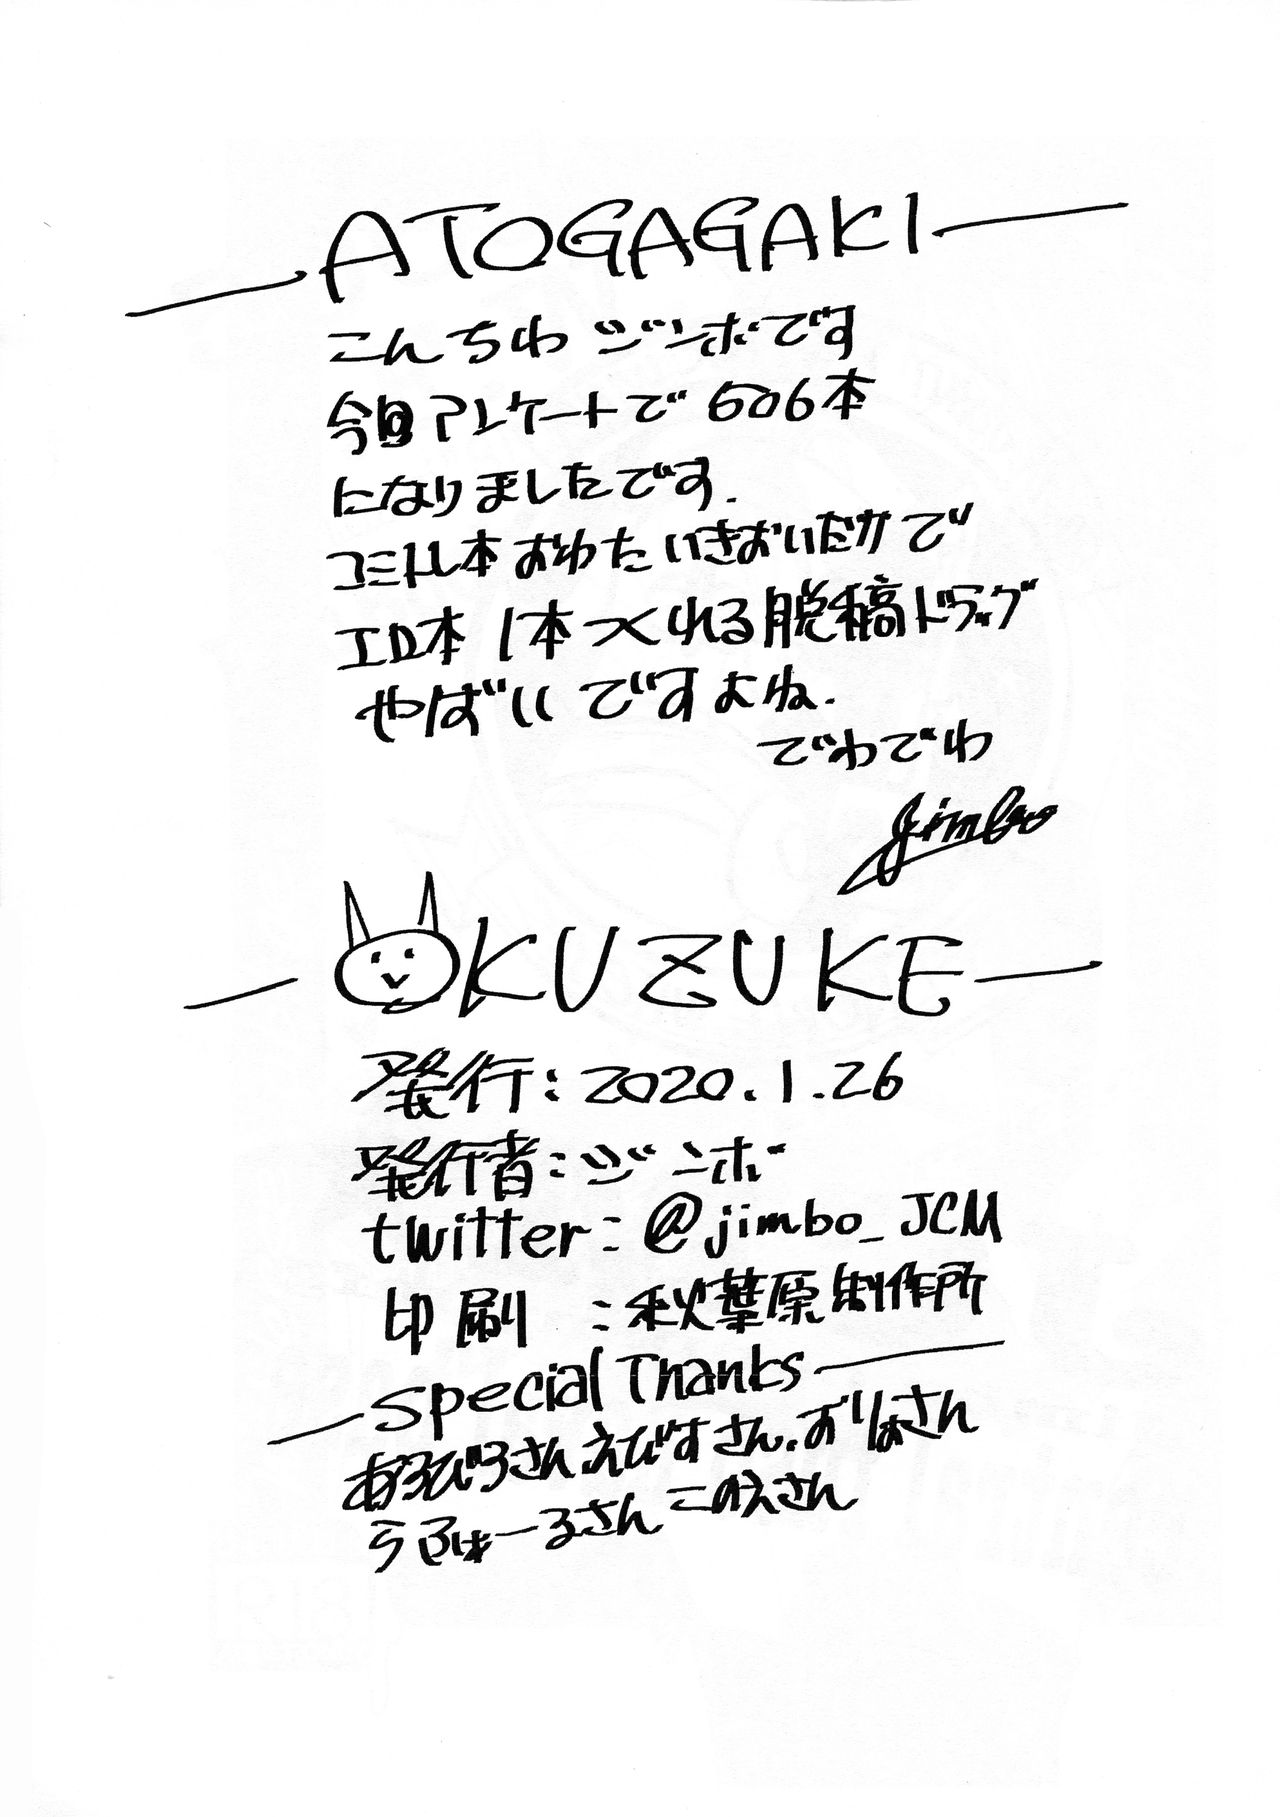 ATOGAGAKI
こんちわ ジンボです
今回アンケートで 606本
になりましたです.
コミトレ本おわたいきおいだかで
エロ本 1本つくれる脱稿ドラッグ
やばいですよね.
でわでわ
jimbo
OKUZUKE
発行:2020.1.26
発行者:ジンボ
twitter:@jimbo_JCM
印刷 :秋葉原制作所
Special Thanks
あろひろさん えびすさん.おりはさん
うるふぁーるさん このえさん
R18